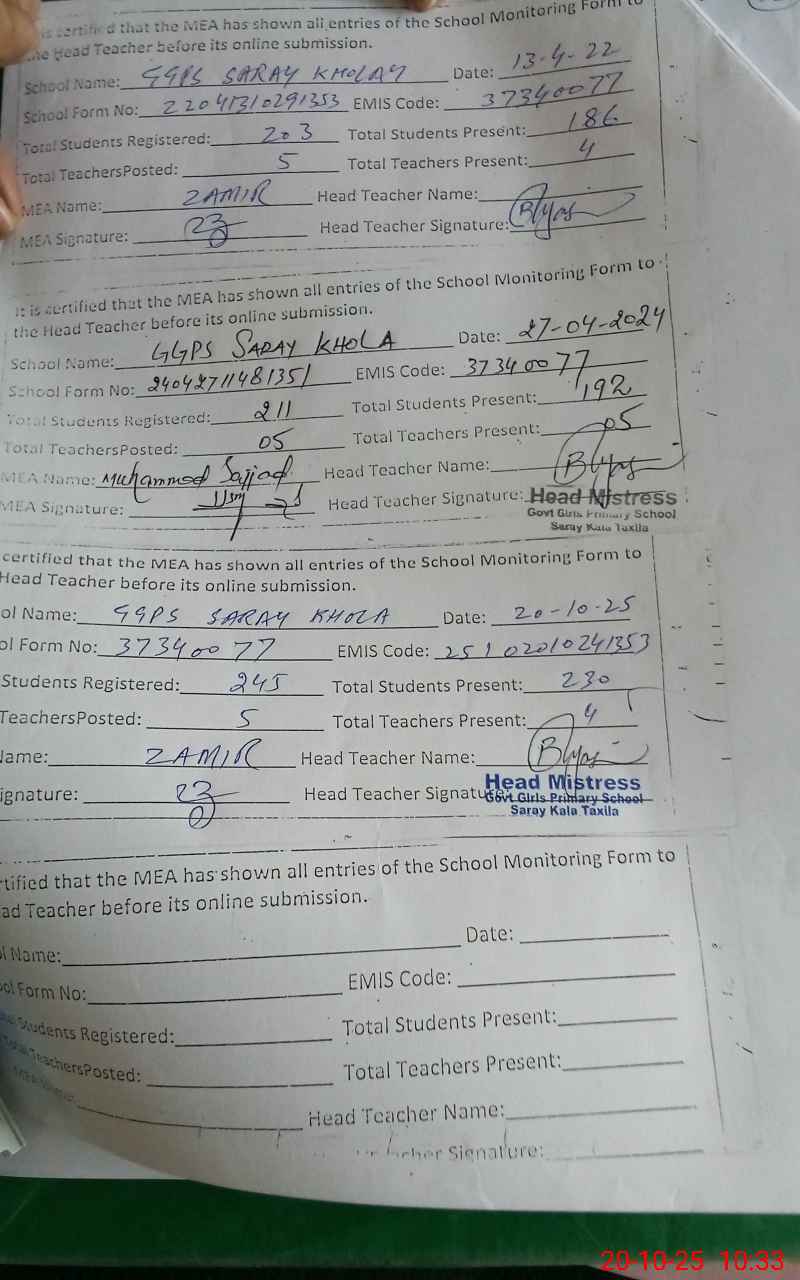 is certified that the MEA has shown all entries of the School Monitoring Form to
the Head Teacher before its online submission.
School Name: GGPS SARAY KHOLAY Date: 13-4-22
School Form No: 22041310291353 EMIS Code: 37340077
Total Students Registered: 203 Total Students Present: 186
Total TeachersPosted: 5 Total Teachers Present: 4
MEA Name: ZAMIR Head Teacher Name:
MEA Signature: Head Teacher Signature:
It is certified that the MEA has shown all entries of the School Monitoring Form to
the Head Teacher before its online submission.
School Name: GGPS SARAY KHOLA Date: 27-04-2024
School Form No: 24042711481351 EMIS Code: 37340077
Total Students Registered: 211 Total Students Present: 192
Total TeachersPosted: 05 Total Teachers Present: 05
MEA Name: Muhammad Sajjad Head Teacher Name:
MEA Signature: Head Teacher Signature: Head Mistress
Govt Girls Primary School
Saray Kala Taxila
certified that the MEA has shown all entries of the School Monitoring Form to
Head Teacher before its online submission.
ol Name: GGPS SARAY KHOLA Date: 20-10-25
ol Form No: 37340077 EMIS Code: 25102010241353
Students Registered: 245 Total Students Present: 230
TeachersPosted: 5 Total Teachers Present: 4
Name: ZAMIR Head Teacher Name:
ignature: Head Teacher Signature:
Head Mistress
Govt Girls Primary School
Saray Kala Taxila
rtified that the MEA has shown all entries of the School Monitoring Form to
ad Teacher before its online submission.
l Name: Date:
ool Form No: EMIS Code:
Total Students Registered: Total Students Present:
Total TeachersPosted: Total Teachers Present:
MEA Name: Head Teacher Name:
Teacher Signature:
20-10-25 10:33